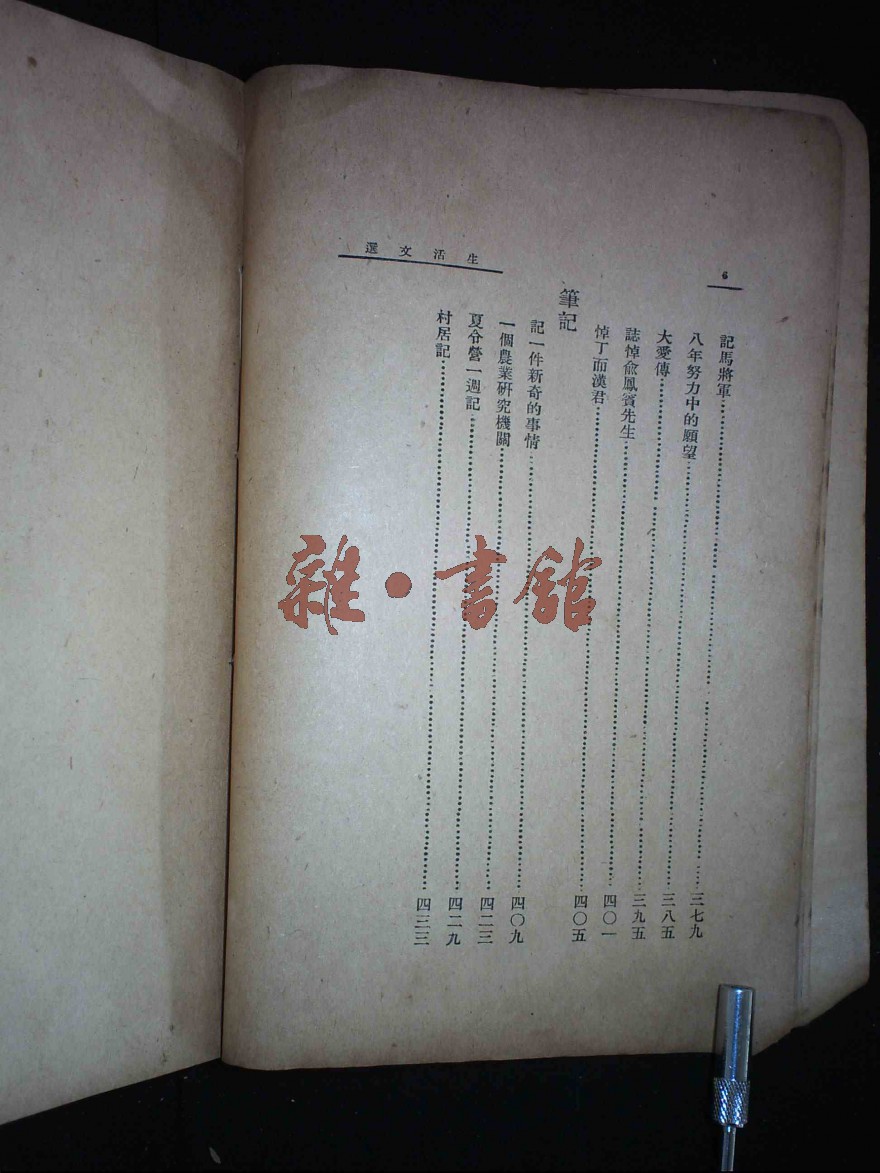 生活文選
6
記馬將軍……三七九
八年努力中的願望……三八五
大愛傳……三九五
誌悼兪鳳賓先生……四〇一
悼丁而漢君……四〇五
筆記
記一件新奇的事情……四〇九
一個農業研究機關……四二三
夏令營一週記……四二九
村居記……四三三
雜·書館